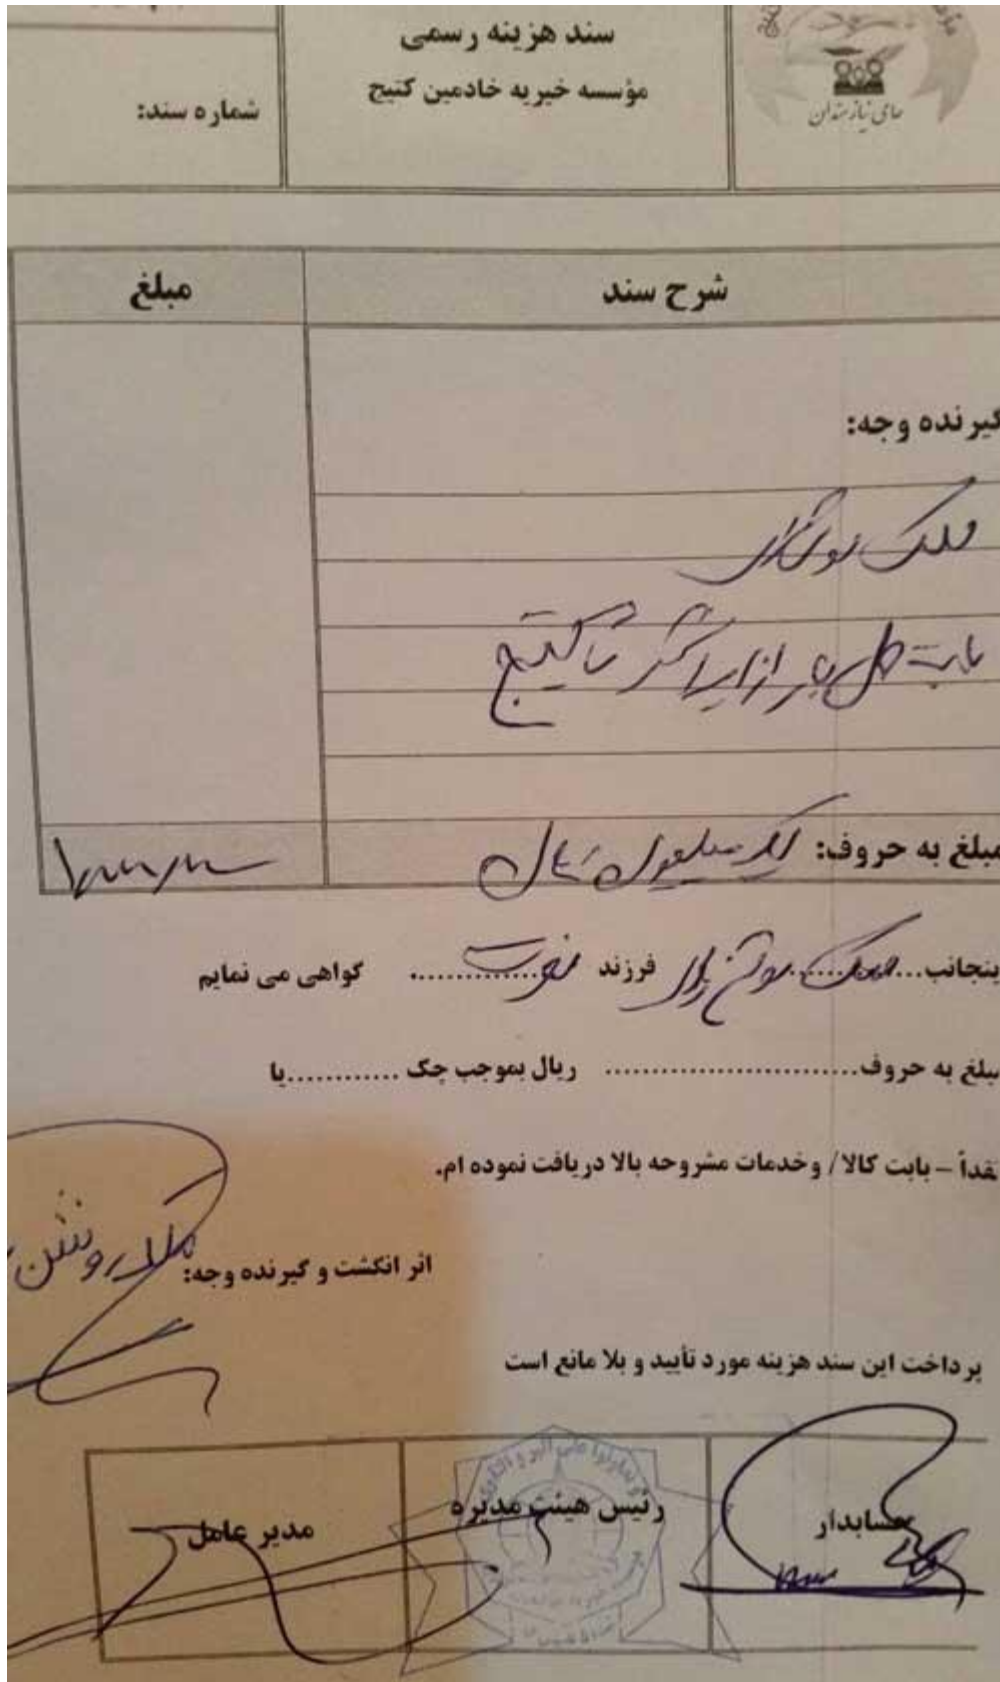 سند هزینه رسمی
مؤسسه خیریه خادمین کتیج
شماره سند:
های نیازمندان
شرح سند
مبلغ
گیرنده وجه:
ملک روشن
بابت حمل بار از ایرانشهر تا کتیج
مبلغ به حروف: یک میلیون ریال
۱۰۰۰۰۰۰
ینجانب.... ملک روشن فرزند ............. گواهی می نمایم
مبلغ به حروف............................ ریال بموجب چک ............یا
نقداً – بابت کالا / وخدمات مشروحه بالا دریافت نموده ام.
اثر انگشت و گیرنده وجه: ملک روشن
پرداخت این سند هزینه مورد تأیید و بلا مانع است
حسابدار
رئیس هیئت مدیره
مدیر عامل
و تعاونوا علی البر و التقوی